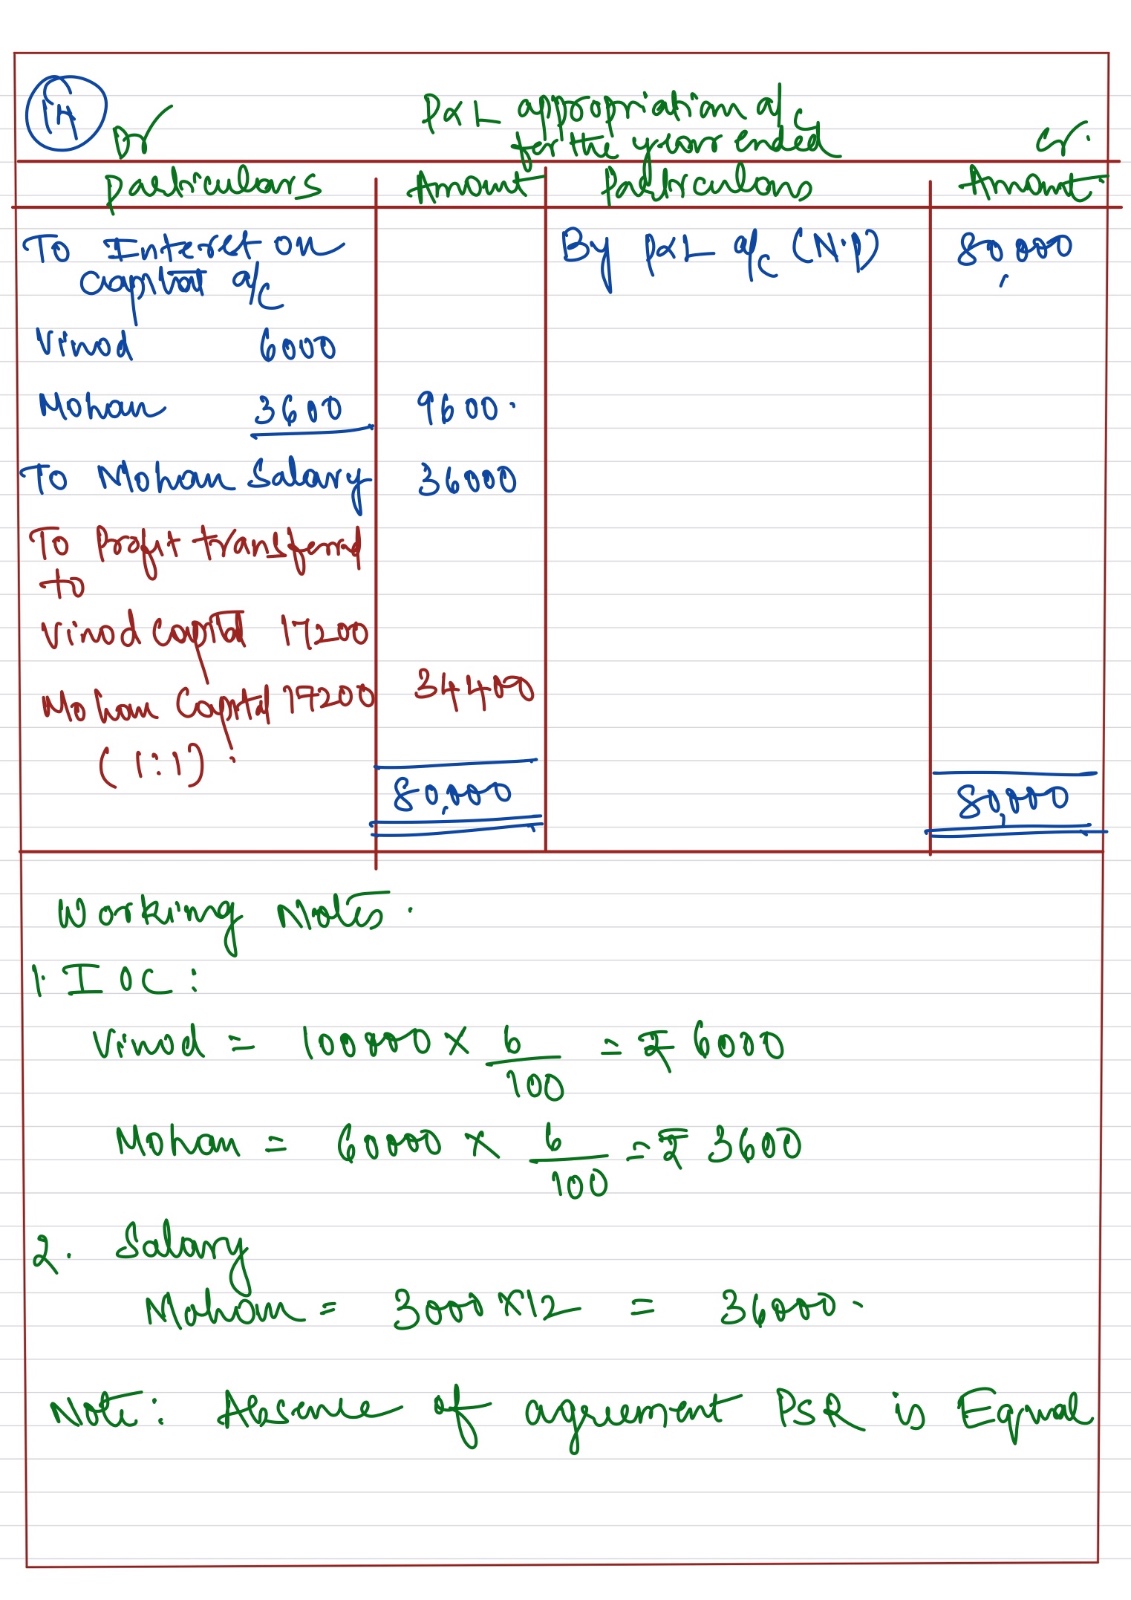 14
Dr P&L appropriation a/c Cr.
for the year ended
Particulars Amount Particulars Amount
To Interest on By P&L a/c (N.P) 80,000
Capital a/c
Vinod 6000
Mohan 3600 9600.
To Mohan Salary 36000
To Profit transferred
to
Vinod Capital 17200
Mohan Capital 17200 34400
(1:1).
80,000 80,000
Working Notes.
1. IOC:
Vinod = 100000 × 6/100 = ₹ 6000
Mohan = 60000 × 6/100 = ₹ 3600
2. Salary
Mohan = 3000 × 12 = 36000.
Note: Absence of agreement PSR is Equal